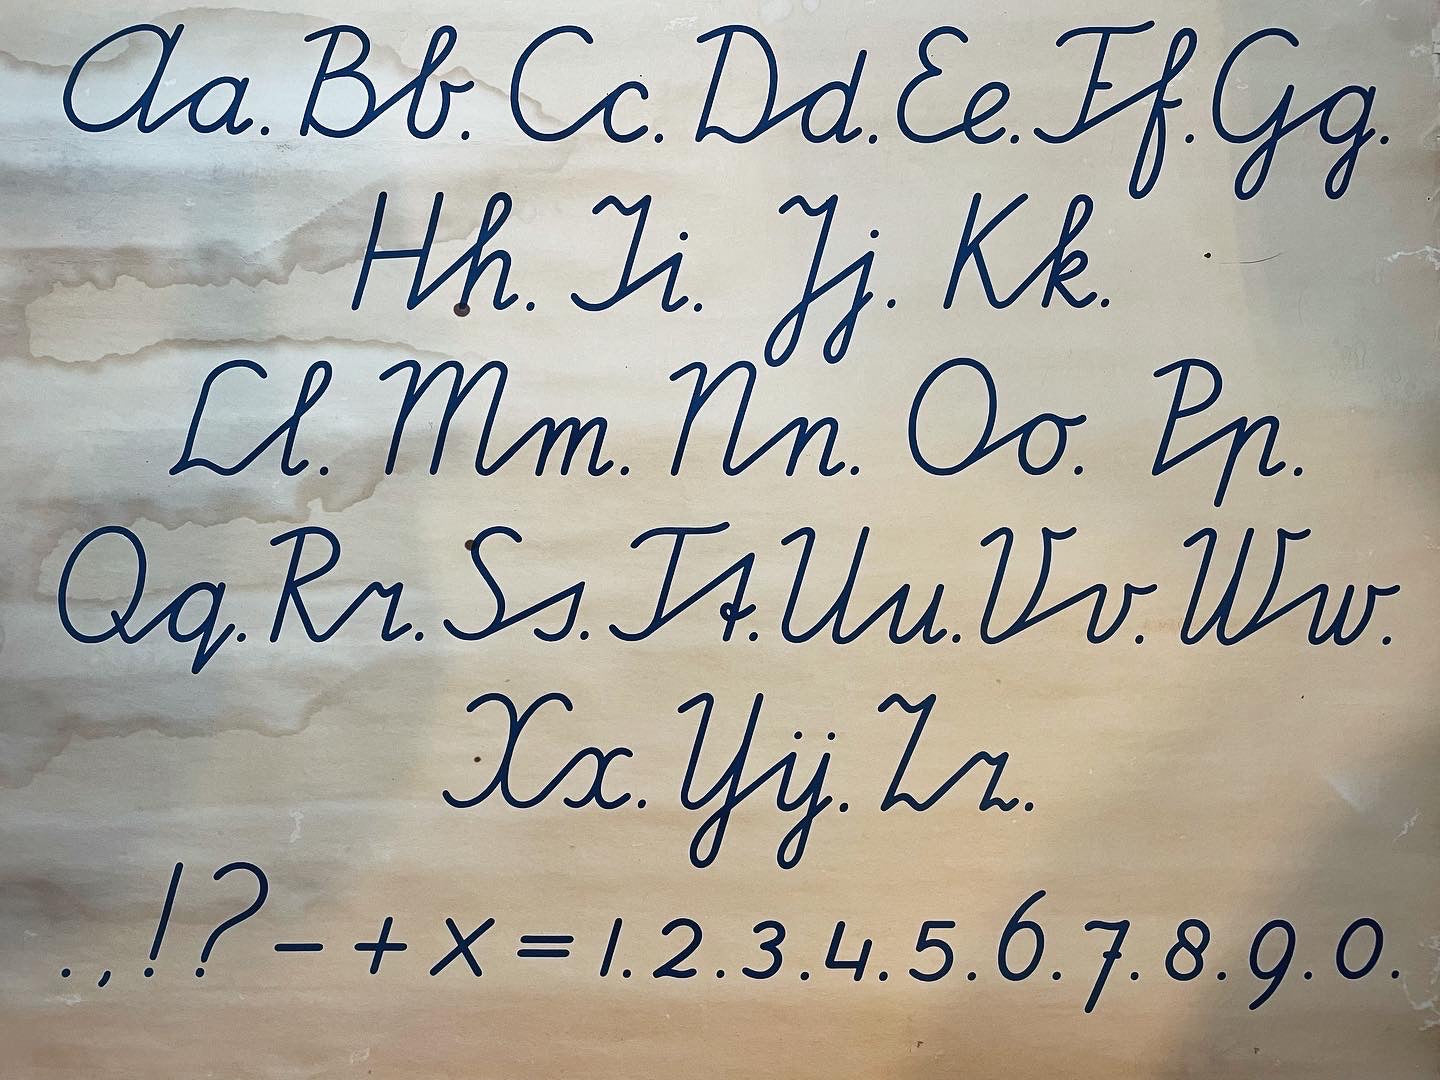 Aa. Bb. Cc. Dd. Ee. Ff. Gg.
Hh. Ii. Jj. Kk.
Ll. Mm. Nn. Oo. Pp.
Qq. Rr. Ss. Tt. Uu. Vv. Ww.
Xx. Yÿ. Zz.
., ! ? - + x = 1. 2. 3. 4. 5. 6. 7. 8. 9. 0.